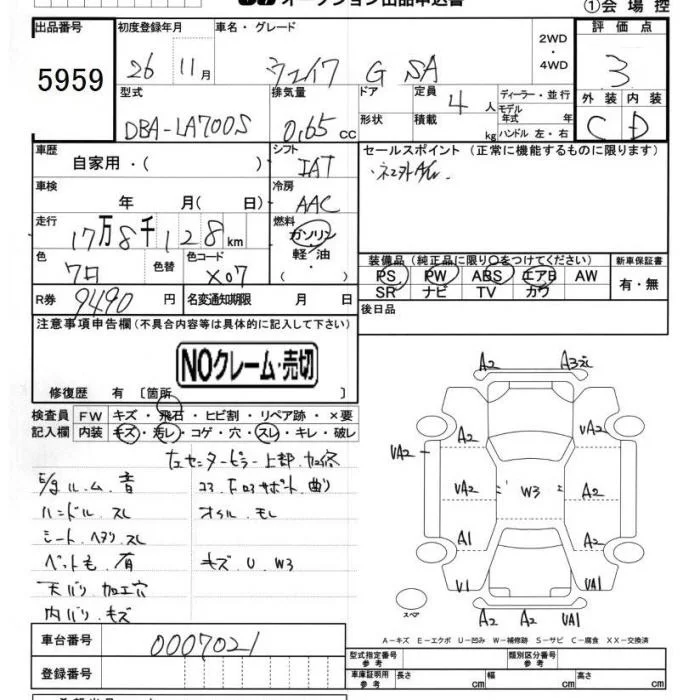 オークション出品申込書
①会場控
出品番号
5959
初度登録年月
26 11月
車名・グレード
ウェイク G SA
2WD
・
4WD
評価点
3
型式
DBA-LA700S
排気量
0.65 cc
ドア
形状
定員
4 人
積載 kg
ディーラー・並行
モデル
年式 年
ハンドル 左・右
外装 内装
C D
車歴
自家用・( )
シフト
IAT
セールスポイント (正常に機能するものに限ります)
・ネコ外AW.
車検
年 月( 日)
冷房
AAC
走行
17万8千128km
燃料
ガソリン
軽・油
・( )
色
クロ
色替
色コード
X07
装備品(純正品に限り○をつけてください)
PS PW ABS エアB AW
SR ナビ TV カワ
新車保証書
有・無
R券
9490 円
名変通知期限 月 日
後日品
注意事項申告欄(不具合内容等は具体的に記入して下さい)
NOクレーム・売切
修復歴 有 〔箇所 〕
検査員
記入欄
FW キズ・飛石・ヒビ割・リペア跡・×要
内装 キズ・汚レ・コゲ・穴・スレ・キレ・破レ
左センターピラー上部.加修
E/gルーム.音
コアサポート曲り
ハンドル.スレ
オイル.モレ
シート.ヘタリ.スレ
ペット毛.有
キズ.U.W3
天バリ.加工穴
内バリ.キズ
A2
A2
UA2
A2
UA2
UA2
W3
A2
A1
A2
U1
UA1
A2 A2 UA1
スペア
A-キズ E-エクボ U-凹み W-補修跡 S-サビ C-腐食 XX-交換済
車台番号
0007021
登録番号
型式指定番号
参考
類別区分番号
参考
車庫証明用
参考
長さ cm
幅 cm
高さ cm